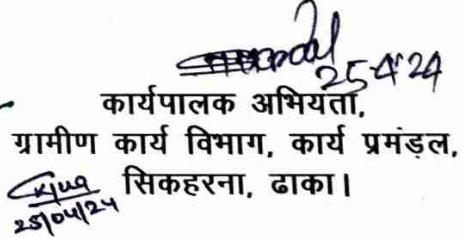 25-4-24
कार्यपालक अभियंता,
ग्रामीण कार्य विभाग, कार्य प्रमंडल,
सिकहरना, ढाका।
25/04/24